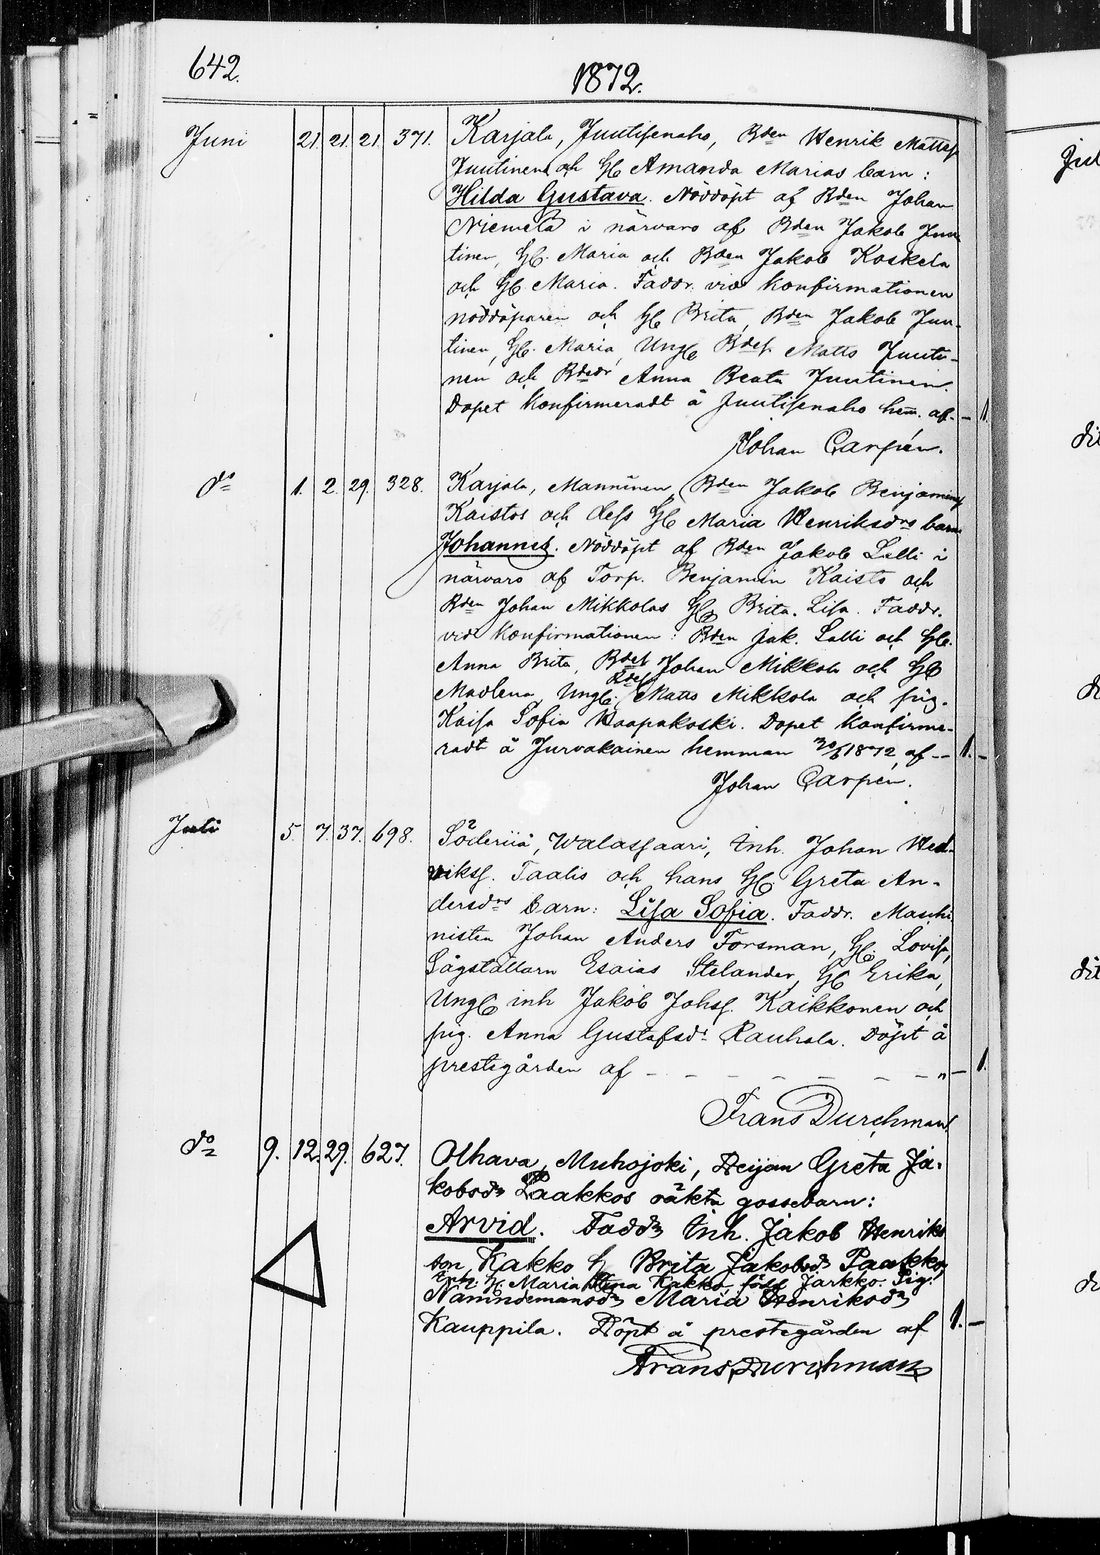 642.
1872.
Juni 21. 21. 21. 371. Karjala, Juutisenaho, Bden Henrik Mattss
Juutinens och H. Amanda Marias barn:
Hilda Gustava. Nöddöpt af Bden Johan
Niemelä i närvaro af Bden Jakob Juu-
tinen, H. Maria och Bden Jakob Koskela
och H. Maria. Faddr. vid konfirmationen
nöddöparen och H. Brita, Bden Jakob Juu-
tinen, H. Maria, Ungk. Bdes. Matts Juuti-
nen och Bdedr Anna Beata Juutinen.
Dopet konfirmeradt å Juutisenaho hem. af - 1
Johan Carpén.
do 1. 2. 29. 328. Karjala, Manninen, Bden Jakob Benjamins
Kaistos och dess H. Maria Henriksdrs barn
Johannes. Nöddöpt af Bden Jakob Lalli i
närvaro af Torp. Benjamin Kaisto och
Bden Johan Mikkolas H. Brita Lisa. Faddr.
vid konfirmationen: Bden Jak. Lalli och H.
Anna Brita, Bdes. Johan Mikkola och H.
Madlena, Ungk. Bdes. Matts Mikkola och pig.
Kaisa Sofia Haapakoski. Dopet konfirme-
radt å Jurvakainen hemman 30/6 1872 af - 1. -
Johan Carpén.
Juli 5. 7. 37. 698. Walassaari, Inh. Johan Hed-
vikss. Taalis och hans H. Greta An-
dersdrs barn: Lisa Sofia. Faddr. Maschi
nisten Johan Anders Forsman, H. Lovisa,
Sågställarn Esaias Stelander, H. Erika,
Ungk. inh Jakob Johss. Kaikkonen och
pig. Anna Gustafsdr Rauhala. Döpt å
prestgården af - - - - - - - " - 1.
Frans Durchman
do 9. 12. 29. 627. Olhava, Muhojoki, Pigan Greta Ja-
kobsdr Paakkos oäkta gossebarn:
Arvid. Faddr Inh. Jakob Henriks
son Kakko H. Brita Jakobsdr Paakko,
Inh. H. Maria Stina Kakko född Jarkko. Pig.
Nämndemansdr Maria Henriksdr
Kauppila. Döpt å prestegården af 1. -
Frans Durchman
Jul
dit
do
dit
do